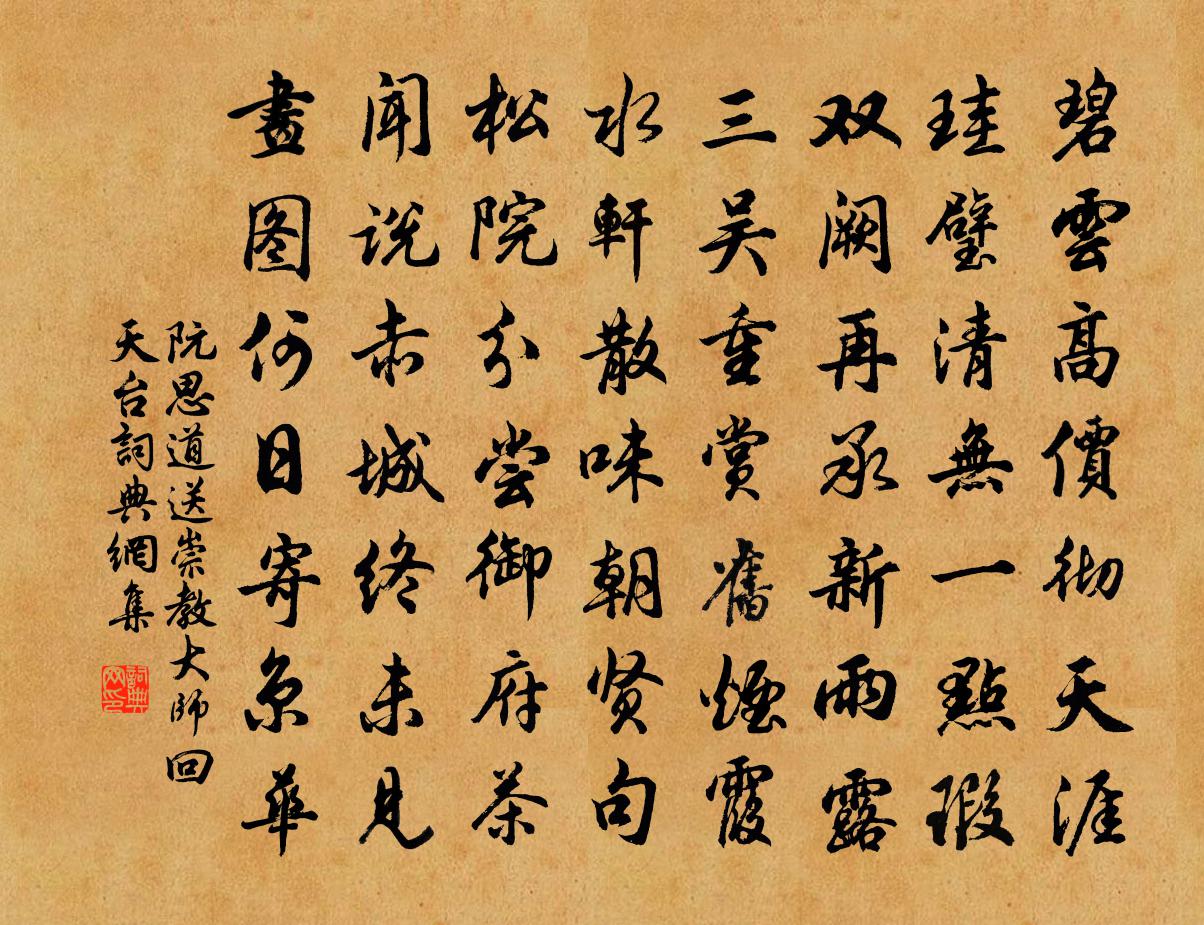 碧雲高價彻天涯
珪璧清無一點瑕
双阙再承新雨露
三吴重赏舊煙霞
水軒散味朝贤句
松院分尝御府茶
闻说赤城终未見
畫图何日寄京華
阮思道送崇教大师回
天台詞典網集
詞典
网印